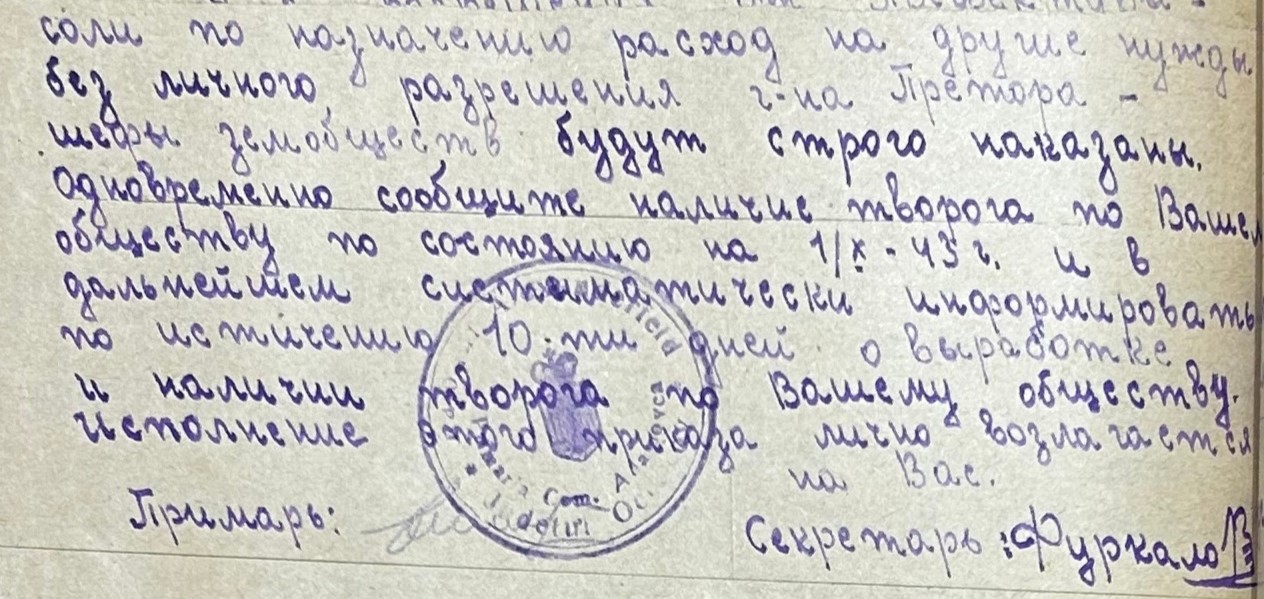 соли по назначению расход на другие нужды
без личного разрешения г-на Претора -
шефы земобществ будут строго наказаны.
Одновременно сообщите наличие творога по Вашем
обществу по состоянию на 1/X - 43 г. и в
дальнейшем систематически информировать
по истичению 10-ти дней о выработке
и наличии творога по Вашему обществу.
Исполнение этого приказа лично возлагается
на Вас.
Примарь:
Секретарь: Фуркало
Com.
Judetul Oc.